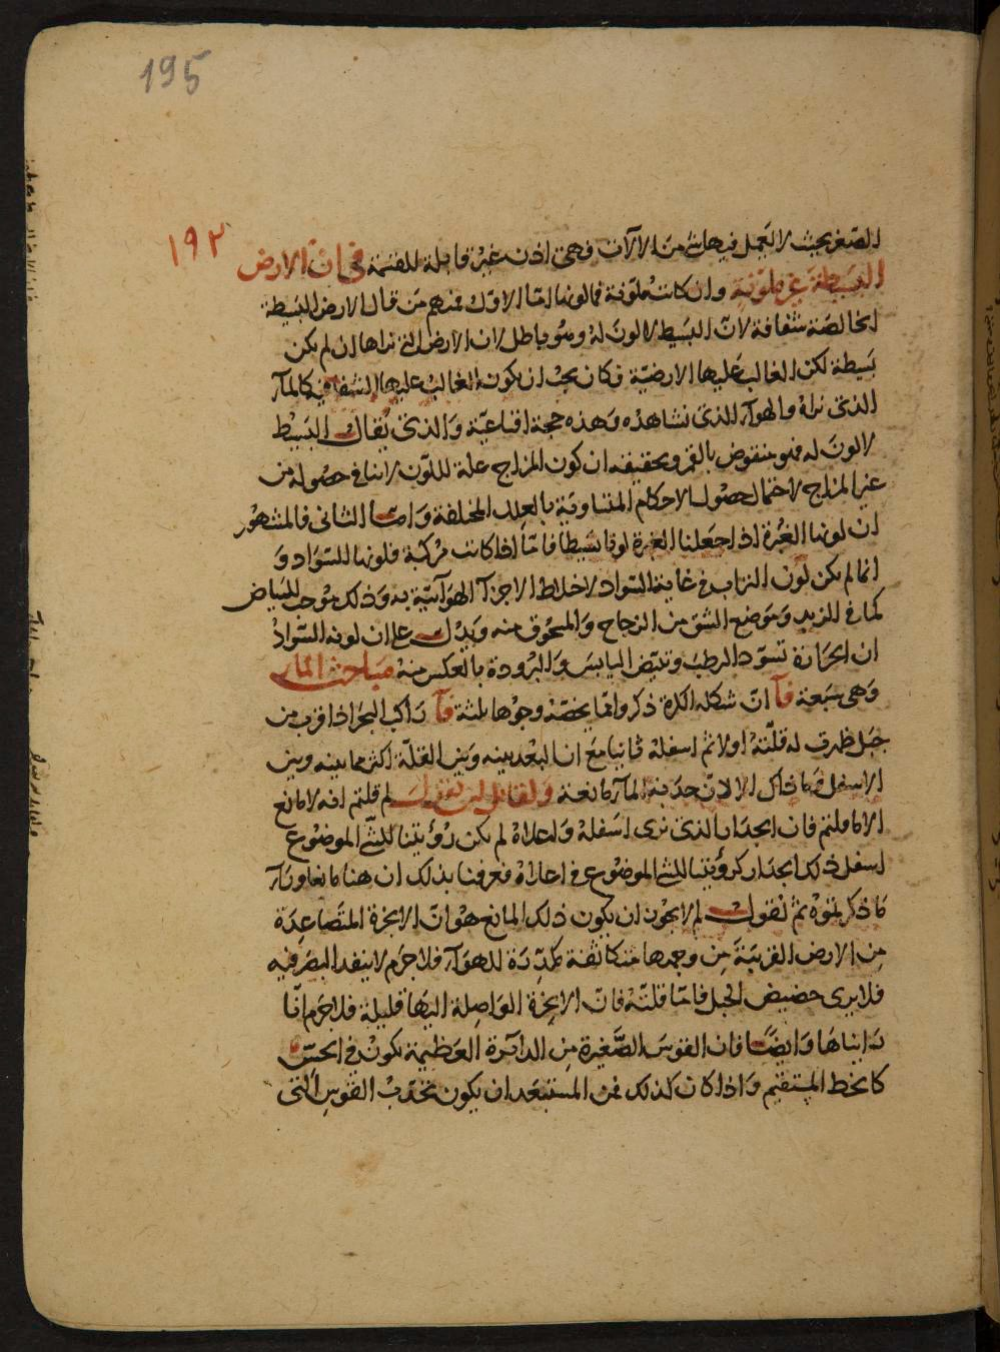 195
١٩٢
الصغر بحيث لا يعمل فيها شئ من الآلات وهى اذن غير قابلة للقسمة فى ان الارض
البسيطة غير ملونة وان كانت ملونة فما لونها اما الاول فمنهم من قال الارض البسيطة
الخالصة شفافة لان البسيط لا لون له وهو باطل لان الارض التى نراها ان لم يكن
بسيطة لكن الغالب عليها الارضية فكان يجب ان يكون الغالب عليها الشفافية كالمآء
الذى نراه والهوآء الذى نشاهده وهذه حجة اقناعية والذى يقال البسيط
لا لون له فهو منقوض بالقمر وتحقيقه ان كون المزاج علة للون لا ينافى حصوله من
غير المزاج لاحتمال حصول الاحكام المتساوية بالعلل المختلفة واما الثانى فالمشهور
ان لونها الغبرة اذا جعلنا الغبرة لونا بسيطا فاما اذا كانت مركبة فلونها السواد و
انما لم يكن لون التراب فى غاية السواد لاختلاط الاجزآء الهوآئية به وذلك موجب للبياض
كما فى الزبد وموضع الشق من الزجاج والمسحوق منه ويدل على ان لونه السواد
ان الحرارة تسود الرطب وتبيض اليابس والبرودة بالعكس منه مباحث المآء
وهى سبعة فآ ان شكله الكرة ذكروا مما يخصه وجوها ثلثة فآ راكب البحر اذا قرب من
جبل ظهرت له قلته اولا ثم اسفله ثانيا مع ان البعد بينه وبين القلة اكثر مما بينه وبين
الاسفل وما ذاك الا لان حدبة المآء مانعة ولقائل ان يقول لم قلتم انه لا مانع
الا ما قلتم فان الجدار الذى نرى اسفله واعلاه لم يكن رؤيتنا للشئ الموضوع
اسفل ذلك الجدار كرؤيتنا للشئ الموضوع فى اعلاه فعرفنا بذلك ان هنا مانعا ورآء
ما ذكرتموه ثم نقول لم لا يجوز ان يكون ذلك المانع هو ان الابخرة المتصاعدة
من الارض القريبة من وجهها متكاثفة مكدرة للهوآء فلا جرم لا ينفد البصر فيه
فلا يرى حضيض الجبل فاما قلته فان الابخرة الواصلة اليها قليلة فلا جرم انا
رايناها وايضا فان القوس الصغيرة من الدائرة العظيمة تكون فى الحس
كالخط المستقيم واذا كان كذلك فمن المستبعد ان يكون تحدب القوس التى